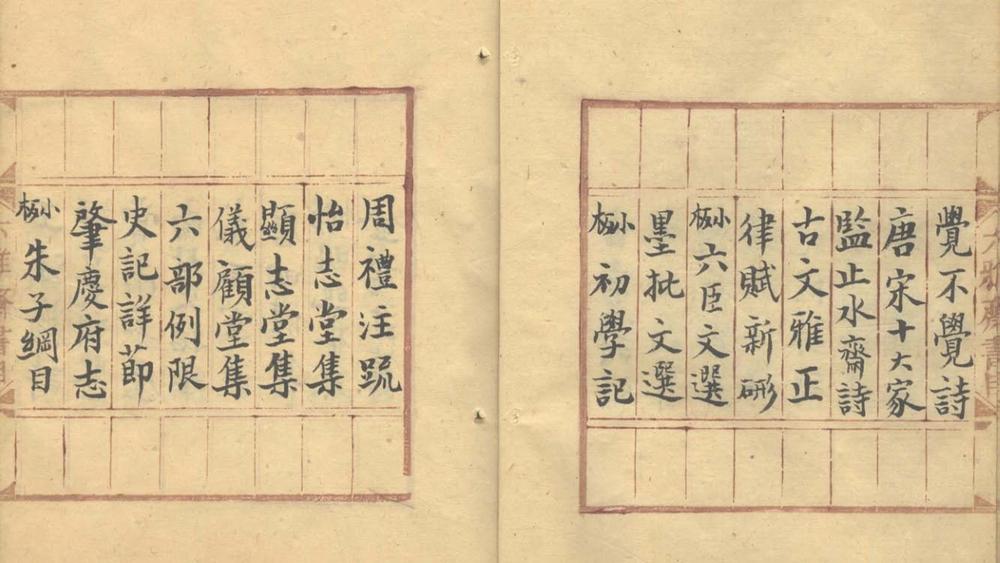 覺不覺詩
唐宋十大家
監止水齋詩
古文雅正
律賦新硎
小板六臣文選
墨批文選
小板初學記
周禮注疏
怡志堂集
顯志堂集
儀顧堂集
六部例限
史記詳節
肇慶府志
小板朱子綱目